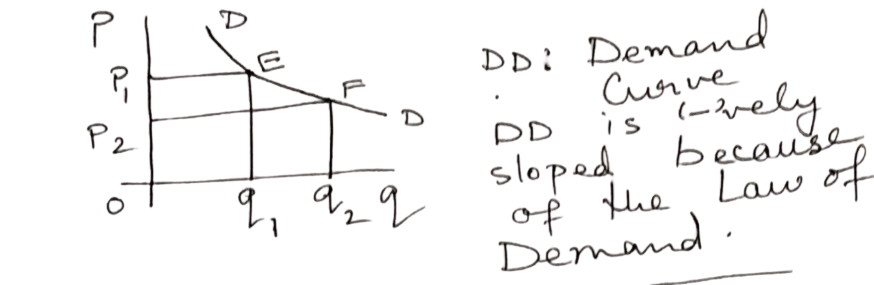 P
D
P1
E
F
P2
D
O
q1
q2
q
DD: Demand
Curve
DD is (-)vely
sloped because
of the Law of
Demand.